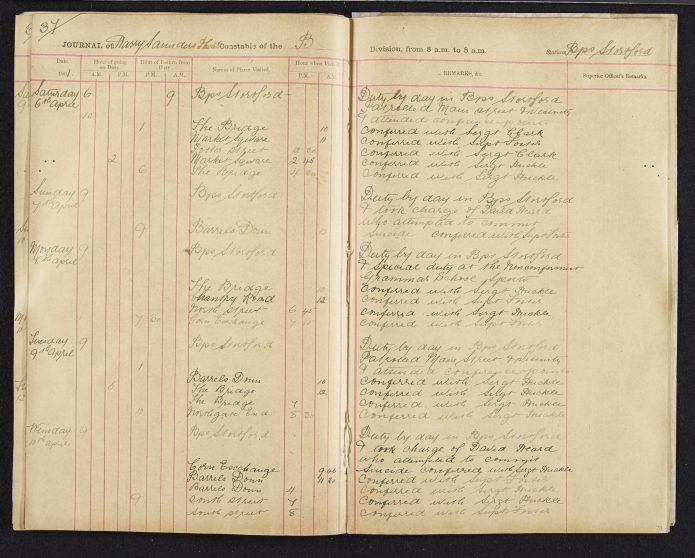 37
JOURNAL of Harry Saunders Constable of the B Division, from 8 a.m. to 8 a.m. Station, Bps Stortford
Date. Hour of going on Duty. Hour of Return from Duty. Names of Places Visited. Hour when Visited. REMARKS, &c. Superior Officer's Remarks.
A.M. P.M. P.M. A.M. P.M. A.M.
Saturday 6 9 Bps Stortford Duty by day in Bps Stortford
6th April Patrolled Main Street & Vicinity
10 & attended conference points
1 The Bridge 10 Conferred with Sergt Clark
Market Square 11 Conferred with Supt Foster
Street Conferred with Sergt Clark
2 Market Square 2 45 Conferred with Sergt Huckle
6 The Bridge 4 Conferred with Sergt Huckle
Sunday 9 Bps Stortford Duty by day in Bps Stortford
7th April & took charge of David Heard
who attempted to commit
9 Barrells Down Suicide Conferred with Supt Foster
Monday 9 Bps Stortford Duty by day in Bps Stortford
8th April & Special duty at the Nonconformist
Grammar School Sports
The Bridge 10 Conferred with Sergt Huckle
Chantry Road 12 Conferred with Supt Foster
North Street 6 45 Conferred with Sergt Huckle
7 30 Corn Exchange 7 Conferred with Supt Foster
Tuesday 9 Bps Stortford Duty by day in Bps Stortford
9th April Patrolled Main Street & Vicinity
1 & attended conference points
Barrells Down 10 Conferred with Sergt Huckle
6 The Bridge 12 Conferred with Sergt Huckle
The Bridge 7 Conferred with Sergt Huckle
Northgate End 8 30 Conferred with Sergt Huckle
9 Bps Stortford Duty by day in Bps Stortford
10th April & took charge of David Heard
who attempted to commit
Corn Exchange 9 Suicide Conferred with Sergt Huckle
Barrells Down 11 20 Conferred with Supt Foster
Barrells Down 4 Conferred with Sergt Huckle
9 South Street 7 Conferred with Sergt Huckle
South Street 8 Conferred with Supt Foster